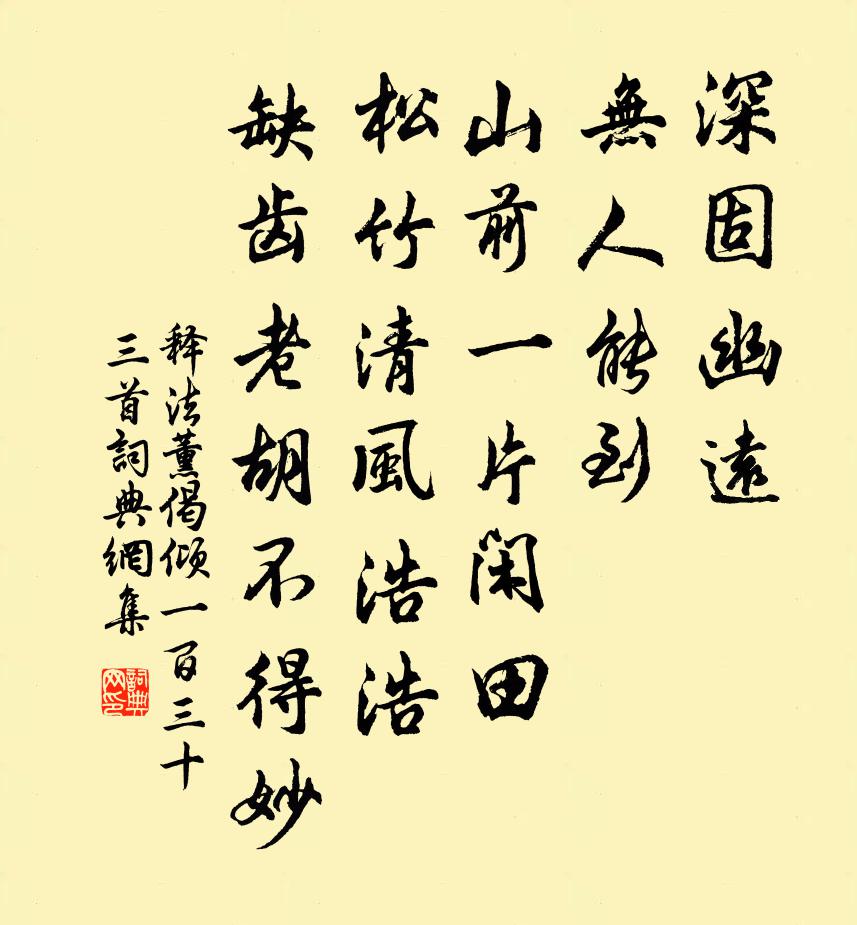 深固幽遠
無人能到
山前一片閑田
松竹清風浩浩
缺齿老胡不得妙
释法薰偈倾一百三十
三首詞典網集
詞典网印